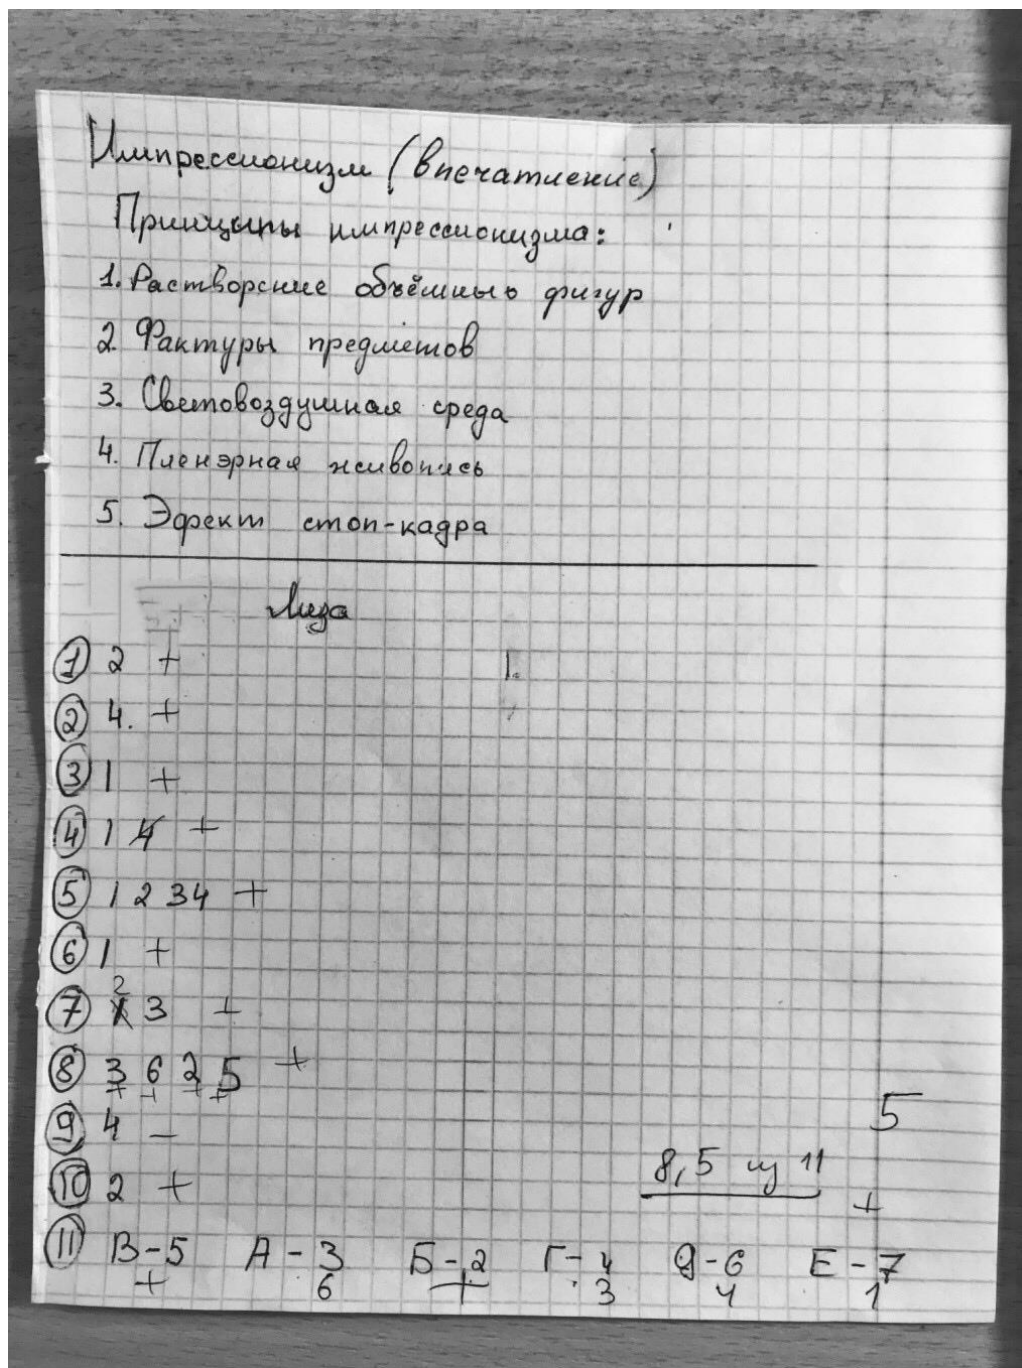 Импрессионизм (впечатление)
Принцыпы импрессионизма:
1. Растворение объёмных фигур
2. Фактуры предметов
3. Световоздушная среда
4. Пленэрная живопись
5. Эфект стоп-кадра
Лиза
1 2 +
2 4. +
3 1 +
4 1 4 +
5 1 2 3 4 +
6 1 +
2
7 1 3 +
8 3 6 2 5 +
+ + + +
9 4 -
5
8,5 из 11
10 2 +
+
11 В-5 А-3 Б-2 Г-4 д-6 Е-7
+ 6 + 3 4 1